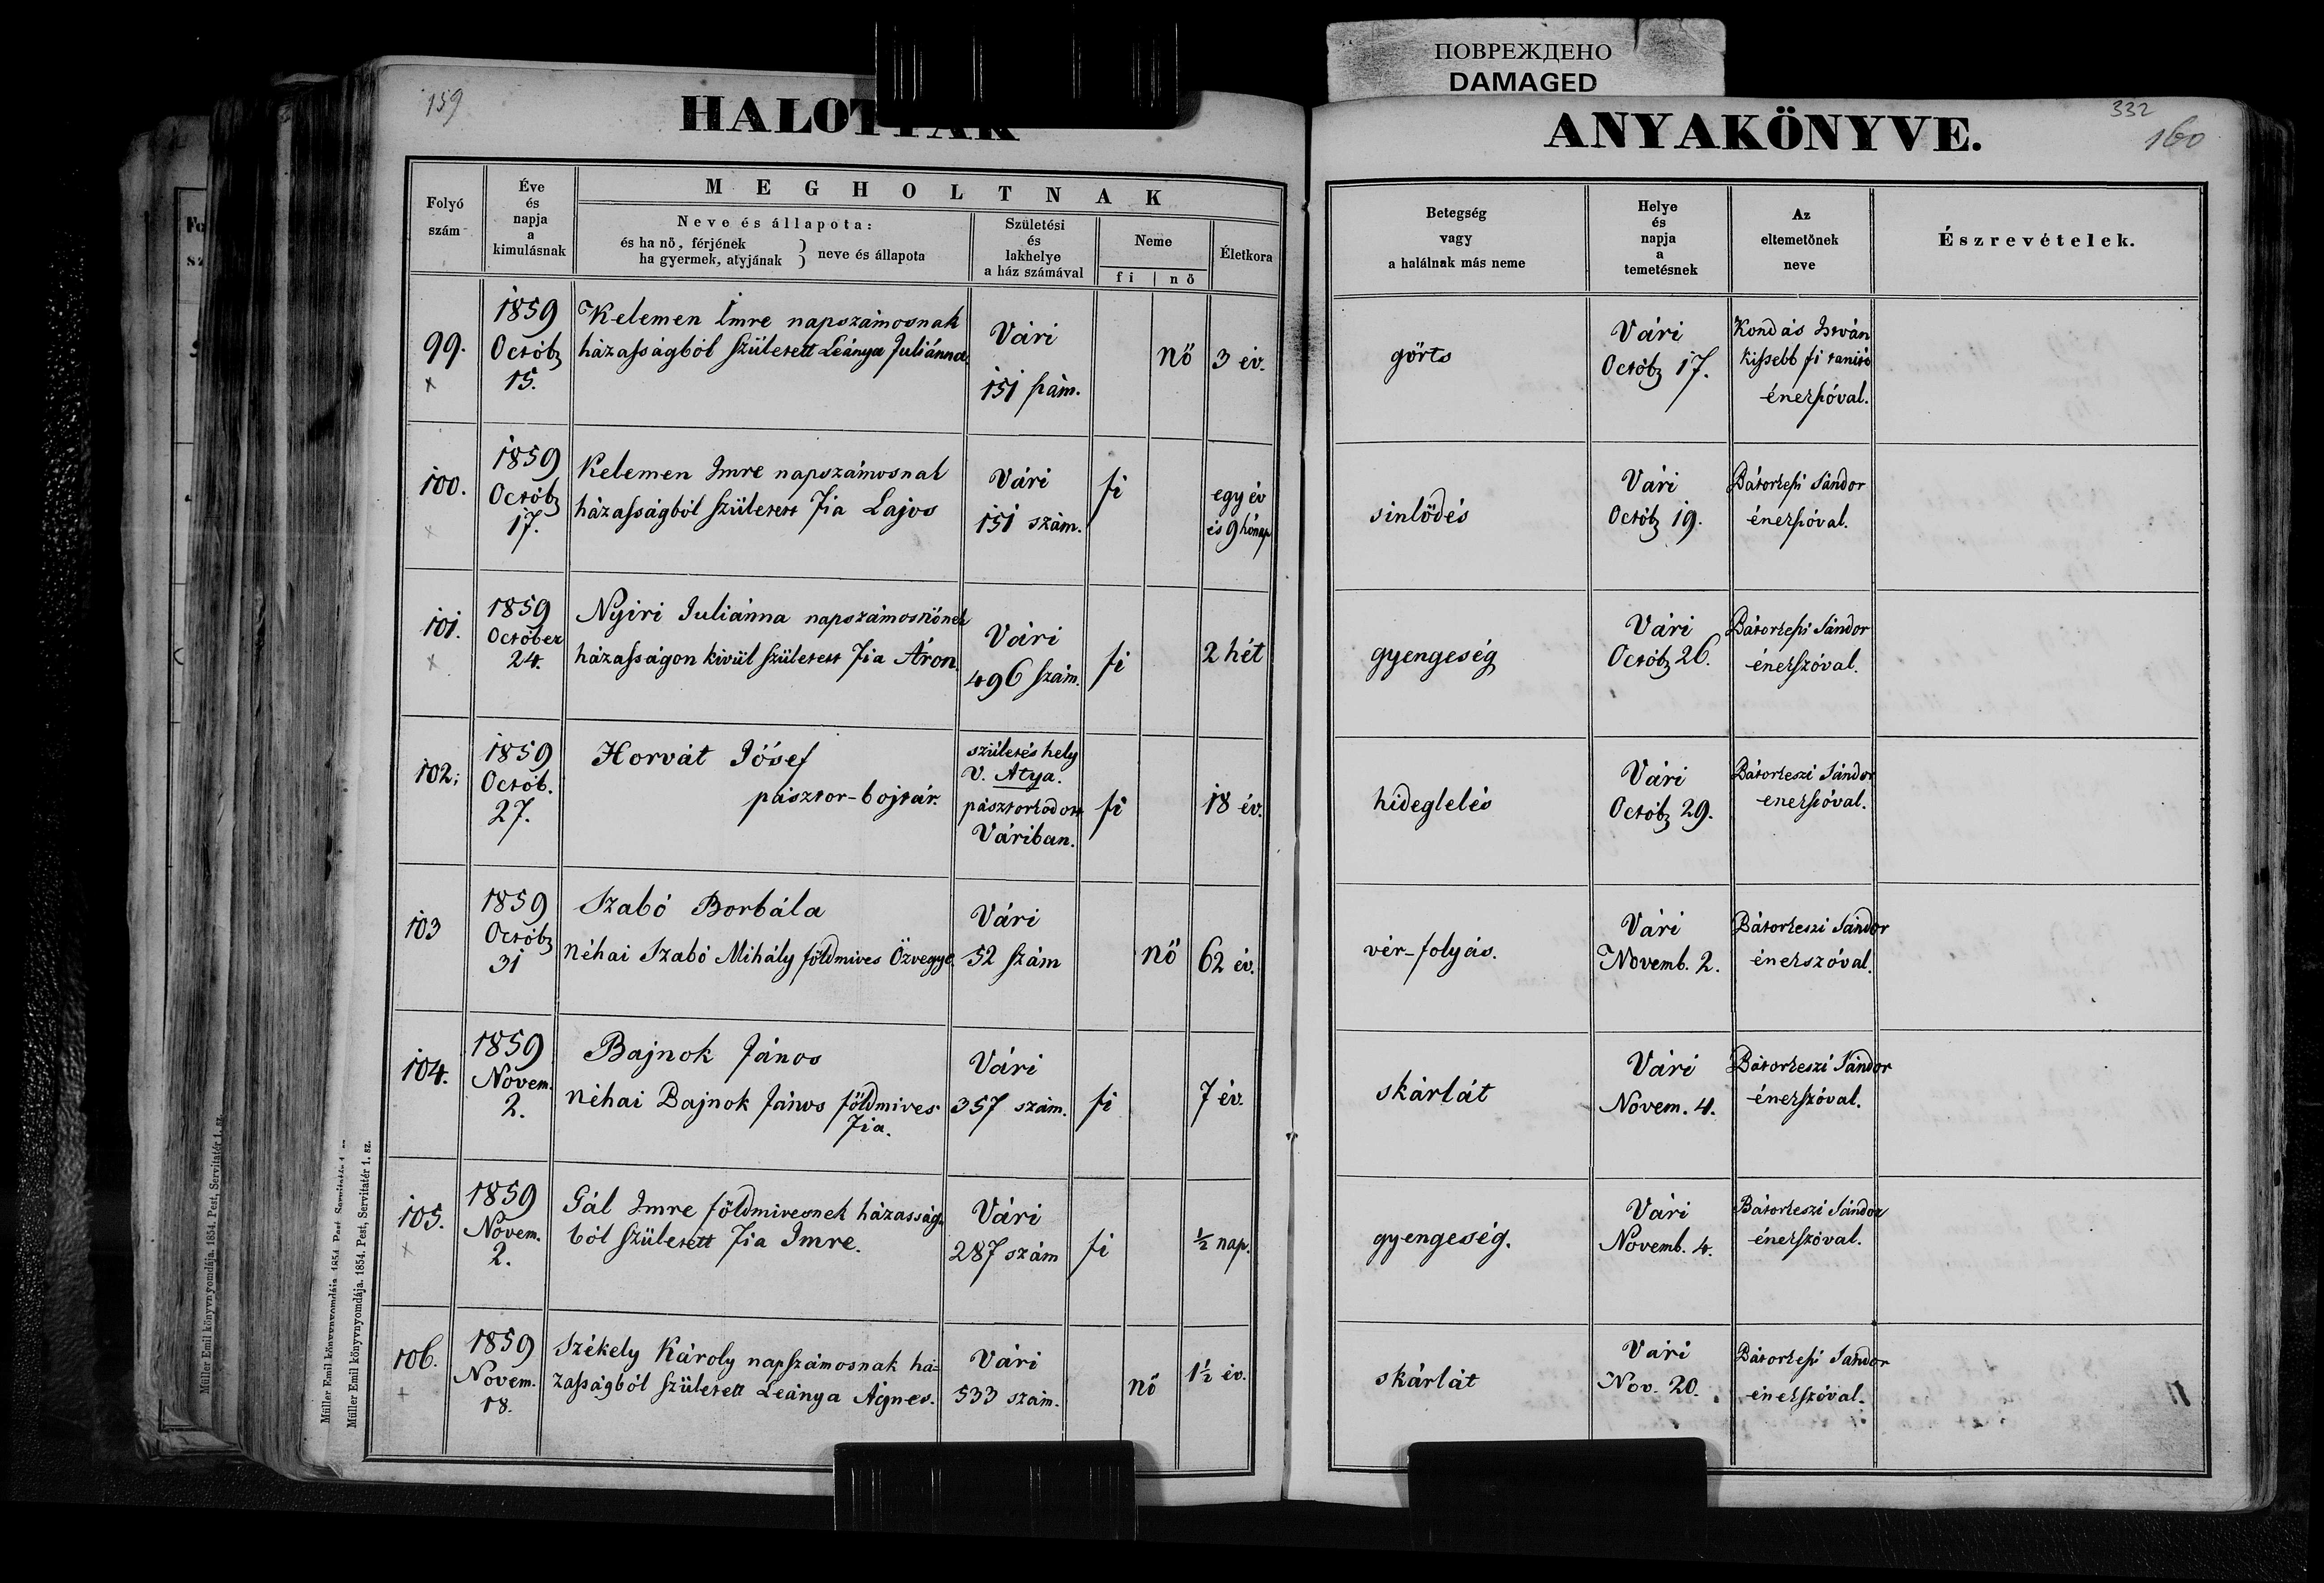 ПОВРЕЖДЕНО
DAMAGED
159
HALOTTAK
ANYAKÖNYVE.
332
160
Folyó
szám
Éve
és
napja
a
kimulásnak
MEGHOLTNAK
Neve és állapota:
és ha nő, férjének
ha gyermek, atyjának
neve és állapota
Születési
és
lakhelye
a ház számával
Neme
fi | nö
Életkora
Betegség
vagy
a halálnak más neme
Helye
és
napja
a
temetésnek
Az
eltemetőnek
neve
Észrevételek.
99.
1859
Octób
15.
Kelemen Imre napszámosnak
házasságból született Leánya Juliánna
Vári
151 szám.
nő
3 év.
görts
Vári
Octób 17.
Kondás István
kissebb fi tanitó
énekszóval.
100.
1859
Octób
17.
Kelemen Imre napszámosnak
házasságból született fia Lajos
Vári
151 szám.
fi
egy év
és 9 hónap
sinlődés
Vári
Octób 19.
Bátorkeszi Sándor
énekszóval.
101.
1859
October
24.
Nyiri Juliánna napszámosnőnek
házasságon kivül született fia Áron
Vári
496 szám.
fi
2 hét
gyengeség
Vári
Octób 26.
Bátorkeszi Sándor
énekszóval.
102.
1859
Octób.
27.
Horvát Jósef
pásztor-bojtár.
születés hely
V. Atya.
pásztorkodott
Váriban.
fi
18 év.
hideglelés
Vári
Octób 29.
Bátorkeszi Sándor
enekszóval.
103
1859
Octób
31
Szabó Borbála
néhai Szabó Mihály földmives Özvegye.
Vári
52 szám
nő
62 év.
vér-folyás.
Vári
Novemb. 2.
Bátorkeszi Sándor
énekszóval.
104.
1859
Novem.
2.
Bajnok János
néhai Bajnok János földmives
fia.
Vári
357 szám.
fi
7 év.
skárlát
Vári
Novem. 4.
Bátorkeszi Sándor
énekszóval.
105.
1859
Novem.
2.
Gál Imre földmivesnek házasság-
ból született fia Imre.
Vári
287 szám
fi
½ nap.
gyengeség.
Vári
Novemb. 4.
Bátorkeszi Sándor
énekszóval.
106.
1859
Novem.
18.
Székely Károly napszámosnak há-
zasságból született Leánya Ágnes.
Vári
533 szám.
nő
1½ év.
skárlát
Vári
Nov. 20.
Bátorkeszi Sándor
énekszóval.
Müller Emil könyvnyomdája. 1854. Pest, Servitatér 1. sz.
Müller Emil könyvnyomdája. 1854. Pest, Servitatér 1. sz.